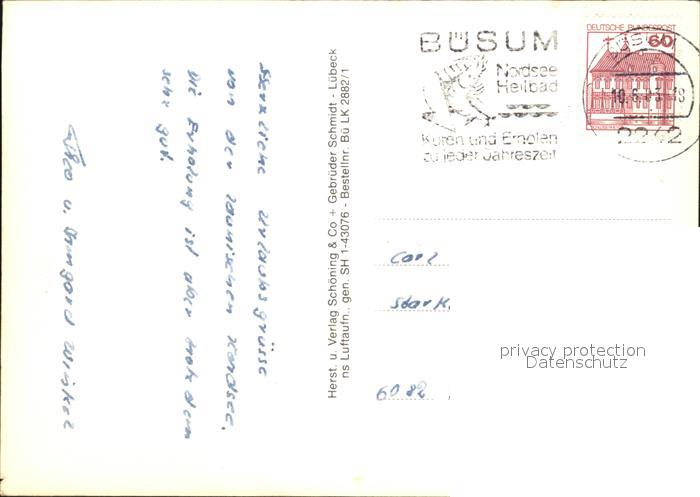 Herzliche Urlaubsgrüsse
von der launischen Nordsee.
Die Erholung ist aber trotzdem
sehr gut.
u. Irmgard Winkel
Herst. u. Verlag Schöning & Co + Gebrüder Schmidt - Lübeck
ns Luftaufn., gen. SH 1-43076 - Bestellnr. Bü LK 2882/1
BÜSUM
Nordsee
Heilbad
Kuren und Erholen
zu jeder Jahreszeit
DEUTSCHE BUNDESPOST
60
2242
Carl
Stark
6082
privacy protection
Datenschutz